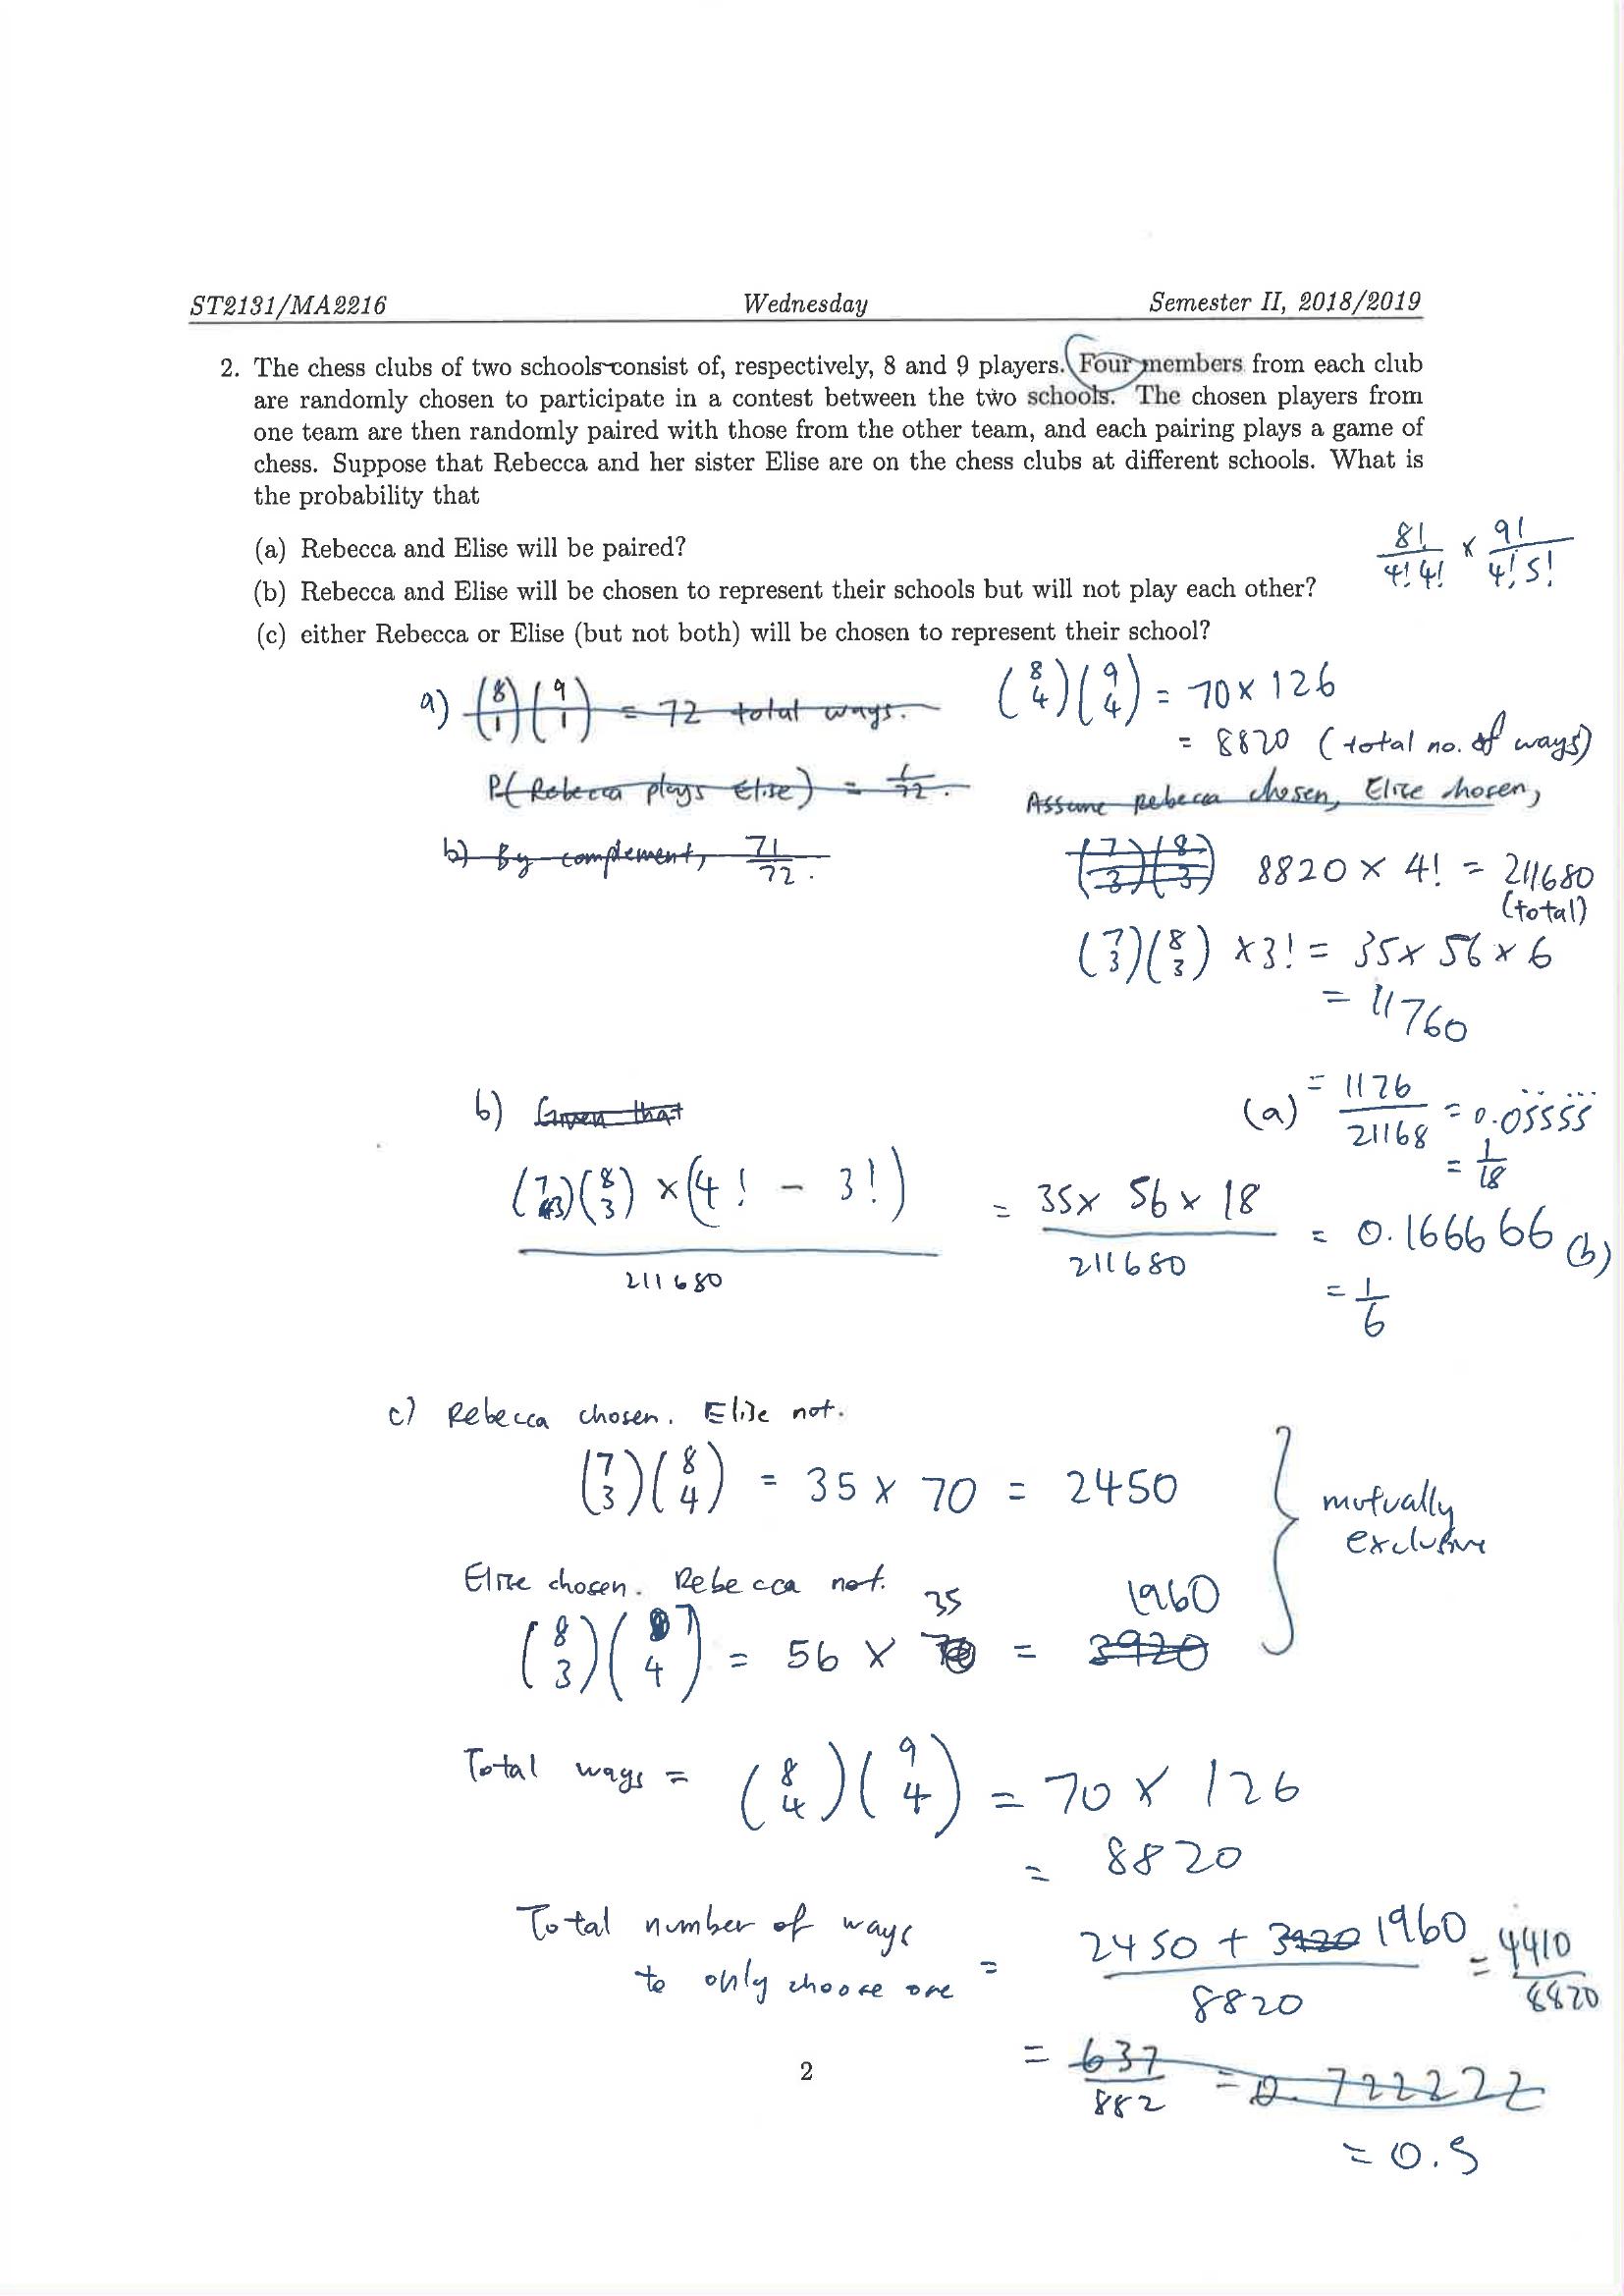 ST2131/MA2216 Wednesday Semester II, 2018/2019
2. The chess clubs of two schools consist of, respectively, 8 and 9 players. Four members from each club
are randomly chosen to participate in a contest between the two schools. The chosen players from
one team are then randomly paired with those from the other team, and each pairing plays a game of
chess. Suppose that Rebecca and her sister Elise are on the chess clubs at different schools. What is
the probability that
(a) Rebecca and Elise will be paired?
(b) Rebecca and Elise will be chosen to represent their schools but will not play each other?
(c) either Rebecca or Elise (but not both) will be chosen to represent their school?
8!/4!4! × 9!/4!5!
a) (8 1)(9 1) = 72 total ways.
P(Rebecca plays Elise) = 1/72.
b) By complement, 71/72.
(8 4)(9 4) = 70 × 126
= 8820 (total no. of ways)
Assume Rebecca chosen, Elise chosen,
(7 3)(8 3) 8820 × 4! = 211680
(total)
(7 3)(8 3) × 3! = 35 × 56 × 6
= 11760
(a) = 1176/21168 = 0.05555
= 1/18
b) Given that
(7 3)(8 3) × (4! - 3!) / 211680 = 35 × 56 × 18 / 211680 = 0.166666 (b)
= 1/6
c) Rebecca chosen. Elise not.
(7 3)(8 4) = 35 × 70 = 2450
Elise chosen. Rebecca not.
(8 3)(7 4) = 56 × 35 = 3920 1960
mutually
exclusive
Total ways = (8 4)(9 4) = 70 × 126
= 8820
Total number of ways
to only choose one = 2450 + 3920 1960 / 8820 = 4410/8820
= 637/882 = 0.722222
= 0.5
2